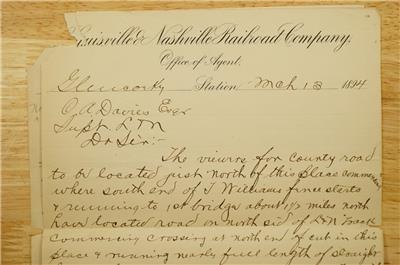 Louisville & Nashville Railroad Company.
Office of Agent.
Glencoe Ky Station Mch 13 1894
C. A. Davies Esqr
Supt L
Dr Sir:-
The viewers for county road
to be located just north of this place commencing
where south end of J Williams fence starts
& running to 1st bridge about 1 1/2 miles north
have located road on north sid of track
commencing crossing at north end of cut in this
place & running nearly full length of straight